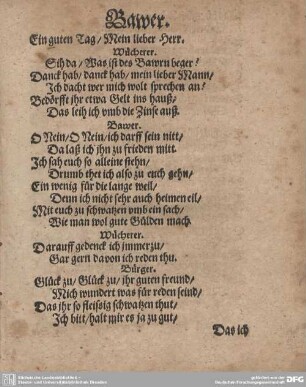 Bawer.
Ein guten Tag/ Mein lieber Herr.
Wücherer.
Sih da/ Was ist des Bawrn beger?
Danck hab/ danck hab/ mein lieber Mann/
Ich dacht wer mich wolt sprechen an?
Bedörfft ihr etwa Gelt ins hauß/
Das leih ich vmb die Zinse auß.
Bawer.
O Nein/ O Nein/ ich darff sein nitt/
Da laß ich jhn zu frieden mitt.
Ich sah euch so alleine stehn/
Drumb thet ich also zu euch gehn/
Ein wenig für die lange weil/
Denn ich nicht sehr auch heimen eil/
Mit euch zu schwatzen vmb ein sach/
Wie man wol gute Gülden mach.
Wücherer.
Darauff gedenck ich jmmerzu/
Gar gern davon ich reden thu.
Bürger.
Glück zu/ Glück zu/ ihr guten freund/
Mich wundert was für reden seind/
Das jhr so fleissig schwatzen thut/
Ich bitt/ halt mir es ja zu gut/
Das ich